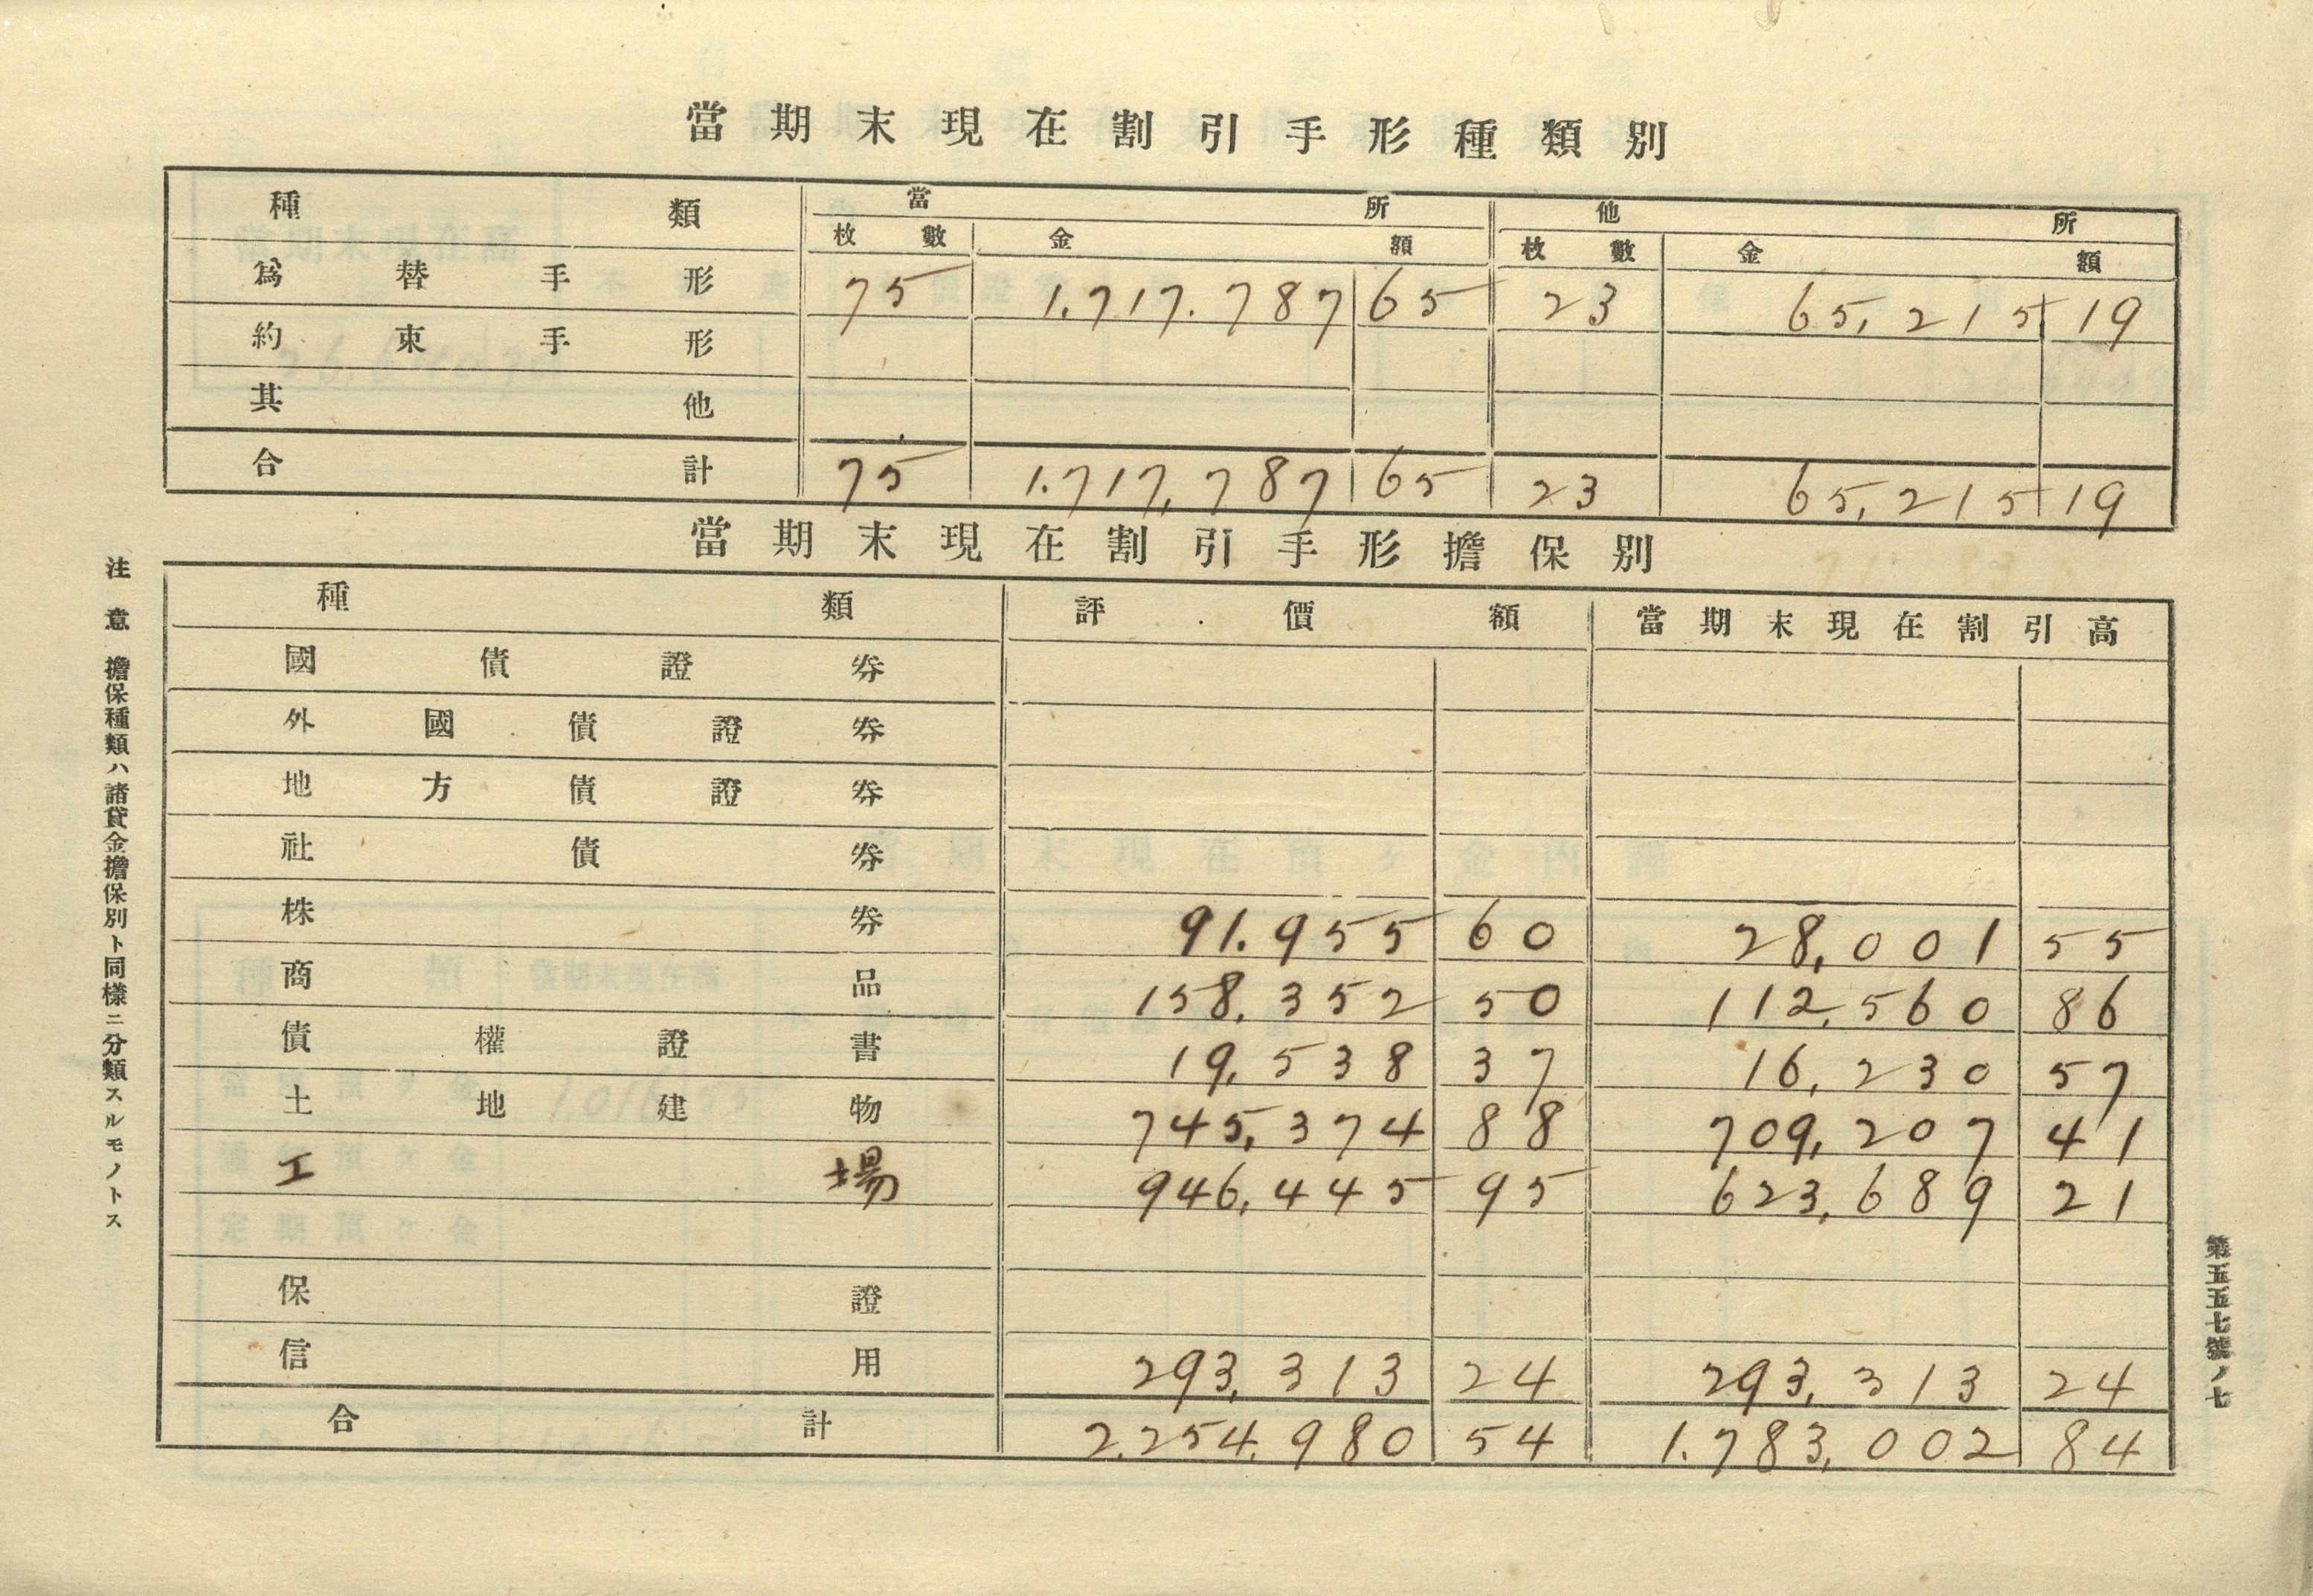 當期末現在割引手形種類別
種類 當所 他所
枚數 金額 枚數 金額
爲替手形 75 1.717.787 65 23 65,215 19
約束手形
其他
合計 75 1.717,787 65 23 65,215 19
當期末現在割引手形擔保別
種類 評價額 當期末現在割引高
國債證券
外國債證券
地方債證券
社債券
株券 91.955 60 28,001 55
商品 158,352 50 112,560 86
債權證書 19,538 37 16,230 57
土地建物 745,374 88 709,207 41
工場 946,445 95 623,689 21
保證
信用 293,313 24 293,313 24
合計 2.254.980 54 1.783,002 84
注意 擔保種類ハ諸貸金擔保別ト同樣ニ分類スルモノトス
第五五七號ノ七